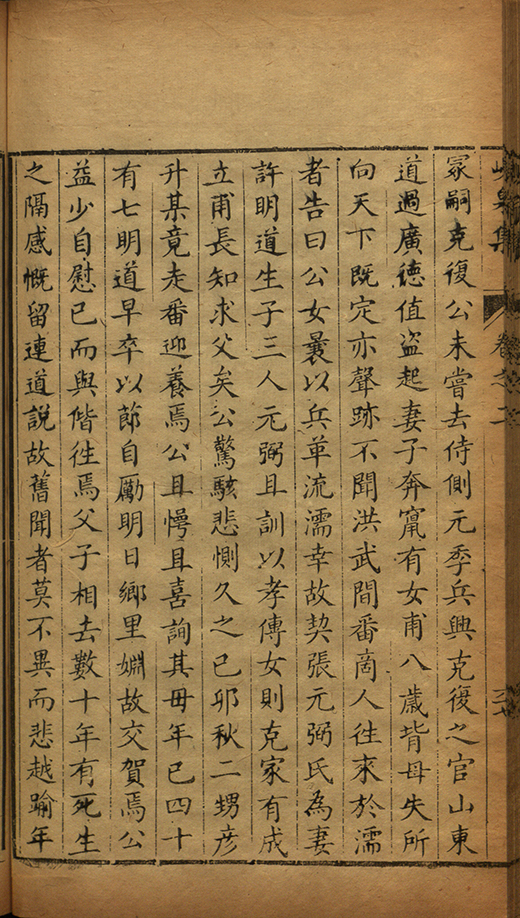 峴泉集 卷之二
冡嗣克復公未嘗去侍側元季兵興克復之官山東
道過廣德值盜起妻子奔竄有女甫八歲背母失所
向天下既定亦聲跡不聞洪武間番啇人往來於濡
者告曰公女曩以兵革流濡幸故契張元弼氏為妻
許明道生子三人元弼且訓以孝傳女則克家有成
立甫長知求父矣公驚駭悲惻久之已卯秋二甥彥
升某竟走番迎養焉公且愕且喜詢其毋年已四十
有七明道早卒以莭自勵明日鄉里婣故交賀焉公
益少自慰已而與偕徃焉父子相去數十年有死生
之隔感慨留連道說故舊聞者莫不異而悲越踰年